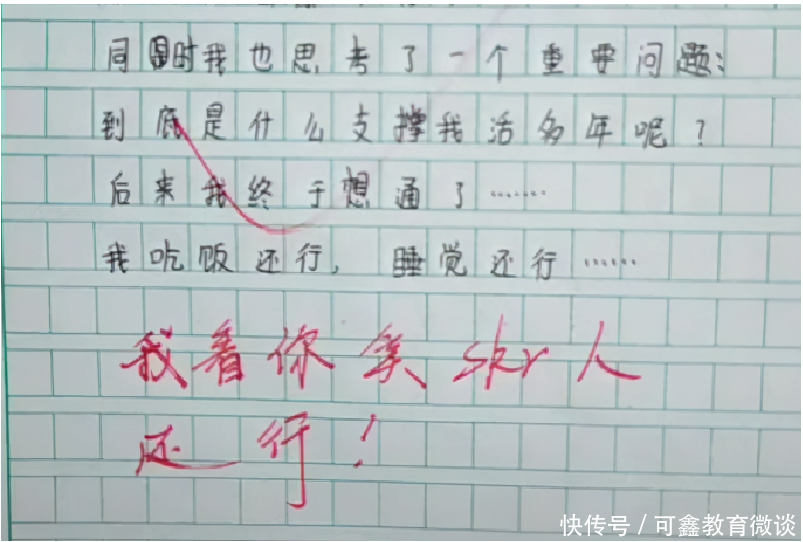 同时我也思考了一个重要问题:
到底是什么支撑我活多年呢?
后来我终于想通了……
我吃饭还行,睡觉还行……
我看你笑skr人
还行!
快传号/可鑫教育微谈